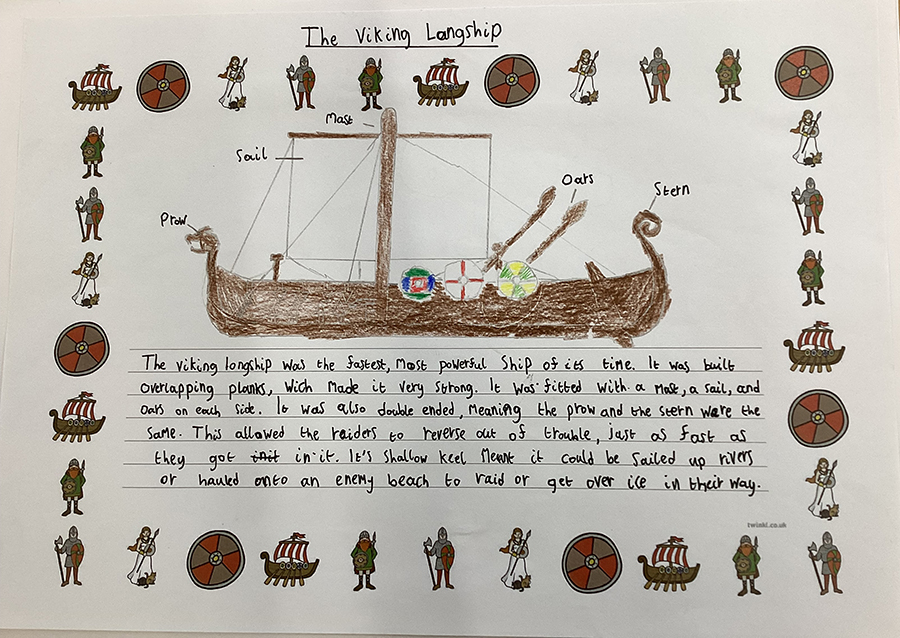 The Viking Langship
Mast
Sail
Oars
Stern
Prow
The viking longship was the fastest, most powerful ship of its time. It was built
overlapping planks, wich made it very strong. It was fitted with a mast, a sail, and
oars on each side. It was also double ended, meaning the prow and the stern were the
same. This allowed the raiders to reverse out of trouble, just as fast as
they got init in it. It's shallow keel meant it could be sailed up rivers
or hauled onto an enemy beach to raid or get over ice in their way.
twinkl.co.uk